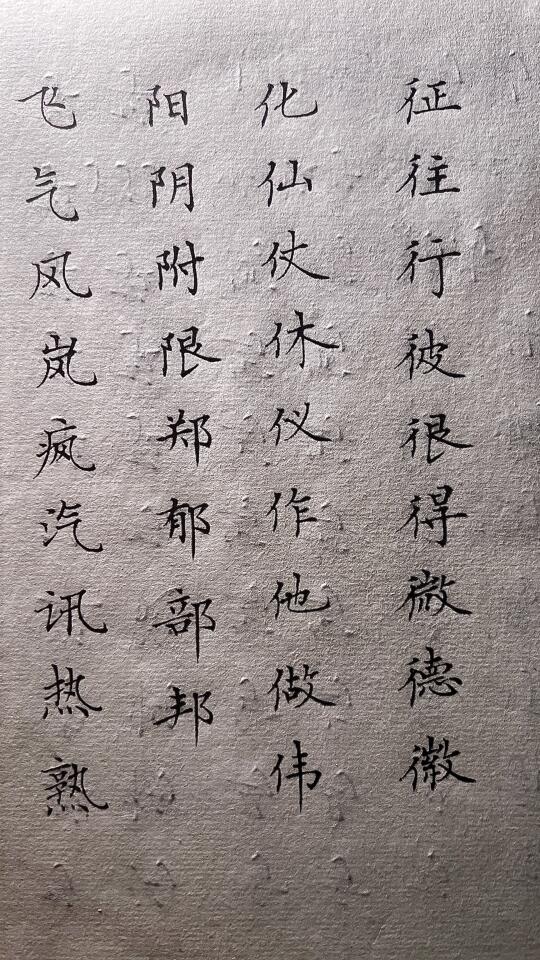 征往行彼很得微德徽
化仙仗休仪作他做伟
阳阴附限郑郁部邦
飞气风岚疯汽讯热熟